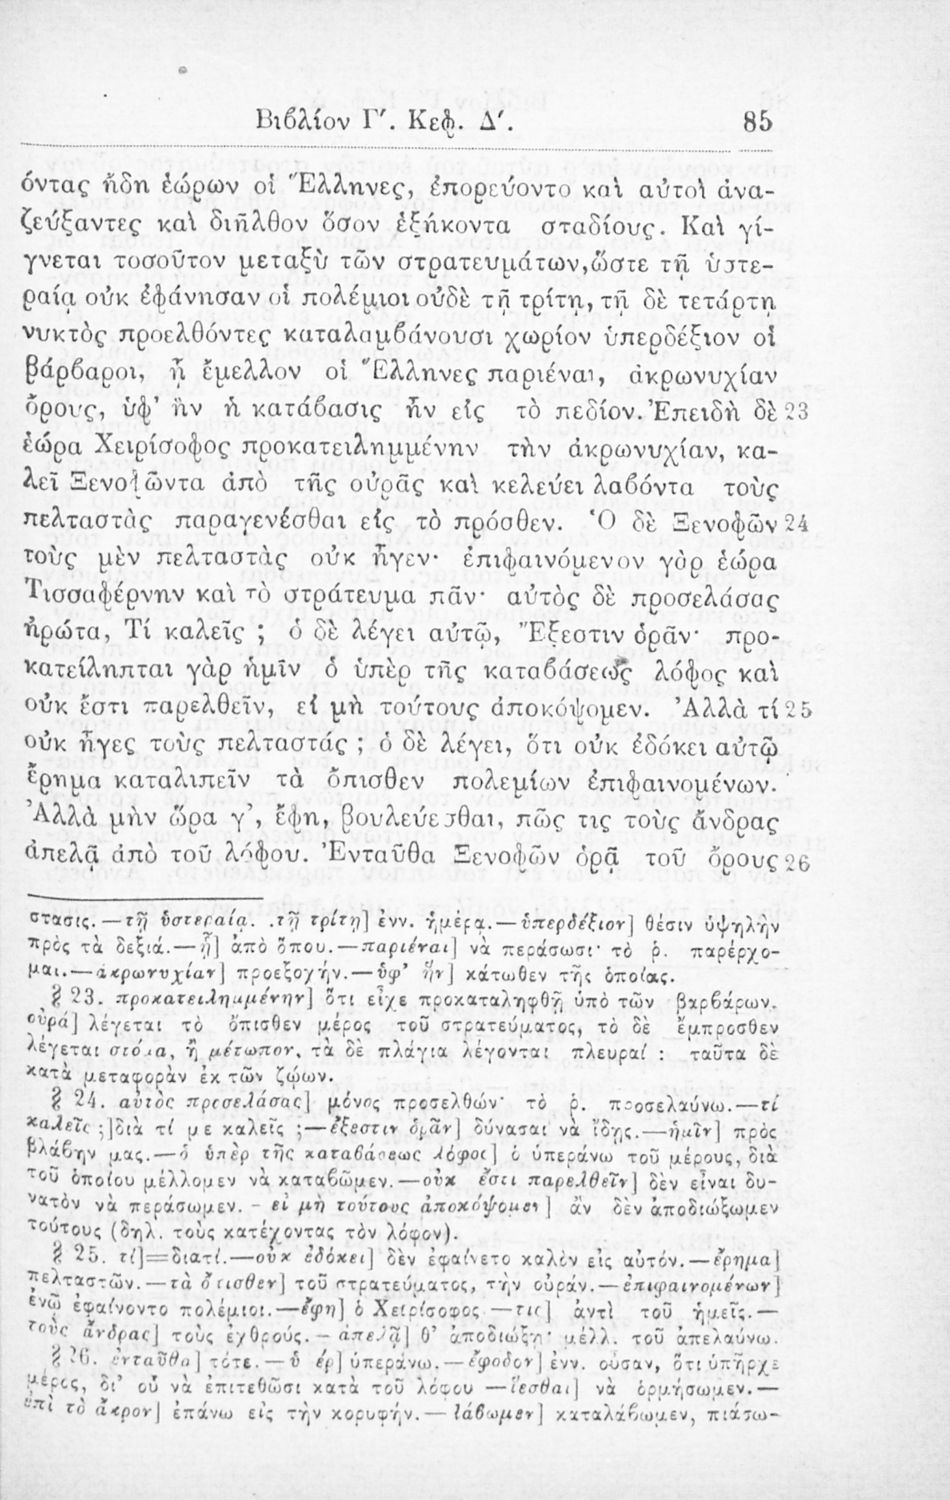 Βιβλίον Γʹ. Κεφ. Δʹ. 85
όντας ἤδη ἑώρων οἱ Ἕλληνες, ἐπορεύοντο καὶ αὐτοὶ ἀνα-
ζεύξαντες καὶ διῆλθον ὅσον ἑξήκοντα σταδίους. Καὶ γί-
γνεται τοσοῦτον μεταξὺ τῶν στρατευμάτων, ὥστε τῇ ὑστε-
ραίᾳ οὐκ ἐφάνησαν οἱ πολέμιοι οὐδὲ τῇ τρίτῃ, τῇ δὲ τετάρτῃ
νυκτὸς προελθόντες καταλαμβάνουσι χωρίον ὑπερδέξιον οἱ
βάρβαροι, ᾗ ἔμελλον οἱ Ἕλληνες παριέναι, ἀκρωνυχίαν
ὄρους, ὑφ' ἣν ἡ κατάβασις ἦν εἰς τὸ πεδίον. Ἐπειδὴ δὲ 23
ἑώρα Χειρίσοφος προκατειλημμένην τὴν ἀκρωνυχίαν, κα-
λεῖ Ξενοφῶντα ἀπὸ τῆς οὐρᾶς καὶ κελεύει λαβόντα τοὺς
πελταστὰς παραγενέσθαι εἰς τὸ πρόσθεν. Ὁ δὲ Ξενοφῶν 24
τοὺς μὲν πελταστὰς οὐκ ἦγεν· ἐπιφαινόμενον γὰρ ἑώρα
Τισσαφέρνην καὶ τὸ στράτευμα πᾶν· αὐτὸς δὲ προσελάσας
ἠρώτα, Τί καλεῖς ; ὁ δὲ λέγει αὐτῷ, Ἔξεστιν ὁρᾶν· προ-
κατείληπται γὰρ ἡμῖν ὁ ὑπὲρ τῆς καταβάσεως λόφος καὶ
οὐκ ἔστι παρελθεῖν, εἰ μὴ τούτους ἀποκόψομεν. Ἀλλὰ τί 25
οὐκ ἦγες τοὺς πελταστάς ; ὁ δὲ λέγει, ὅτι οὐκ ἐδόκει αὐτῷ
ἔρημα καταλιπεῖν τὰ ὄπισθεν πολεμίων ἐπιφαινομένων.
Ἀλλὰ μὴν ὥρα γ', ἔφη, βουλεύεσθαι, πῶς τις τοὺς ἄνδρας
ἀπελᾷ ἀπὸ τοῦ λόφου. Ἐνταῦθα Ξενοφῶν ὁρᾷ τοῦ ὄρους 26
στασις. — τῇ ὑστεραίᾳ. .τῇ τρίτῃ] ἐνν. ἡμέρᾳ. — ὑπερδέξιον] θέσιν ὑψηλὴν
πρὸς τὰ δεξιά. — ᾗ] ἀπὸ ὅπου. — παριέναι] νὰ περάσωσι· τὸ ῥ. παρέρχο-
μαι. — ἀκρωνυχίαν] προεξοχήν. — ὑφ' ἣν] κάτωθεν τῆς ὁποίας.
§ 23. προκατειλημμένην] ὅτι εἶχε προκαταληφθῆ ὑπὸ τῶν βαρβάρων.
οὐρά] λέγεται τὸ ὄπισθεν μέρος τοῦ στρατεύματος, τὸ δὲ ἔμπροσθεν
λέγεται στόμα, ἢ μέτωπον, τὰ δὲ πλάγια λέγονται πλευραί : ταῦτα δὲ
κατὰ μεταφορὰν ἐκ τῶν ζῴων.
§ 24. αὐτὸς προσελάσας] μόνος προσελθών· τὸ ῥ. προσελαύνω. — τί
καλεῖς ;] διὰ τί με καλεῖς ; — ἔξεστιν ὁρᾶν] δύνασαι νὰ ἴδῃς. — ἡμῖν] πρὸς
βλάβην μας. — ὁ ὑπὲρ τῆς καταβάσεως λόφος] ὁ ὑπεράνω τοῦ μέρους, διὰ
τοῦ ὁποίου μέλλομεν νὰ καταβῶμεν. — οὐκ ἔστι παρελθεῖν] δὲν εἶναι δυ-
νατὸν νὰ περάσωμεν. - εἰ μὴ τούτους ἀποκόψομεν] ἂν δὲν ἀποδιώξωμεν
τούτους (δηλ. τοὺς κατέχοντας τὸν λόφον).
§ 25. τί]=διατί. — οὐκ ἐδόκει] δὲν ἐφαίνετο καλὸν εἰς αὐτόν. — ἔρημα]
πελταστῶν. — τὰ ὄπισθεν] τοῦ στρατεύματος, τὴν οὐράν. — ἐπιφαινομένων]
ἐνῷ ἐφαίνοντο πολέμιοι. — ἔφη] ὁ Χειρίσοφος — τις] ἀντὶ τοῦ ἡμεῖς. —
τοὺς ἄνδρας] τοὺς ἐχθρούς. - ἀπελᾷ] θ' ἀποδιώξῃ· μέλλ. τοῦ ἀπελαύνω.
§ 26. ἐνταῦθα] τότε. — ὑπέρ] ὑπεράνω. — ἔφοδον] ἐνν. οὖσαν, ὅτι ὑπῆρχε
μέρος, δι' οὗ νὰ ἐπιτεθῶσι κατὰ τοῦ λόφου — ἵεσθαι] νὰ ὁρμήσωμεν. —
ἐπὶ τὸ ἄκρον] ἐπάνω εἰς τὴν κορυφήν. — λάβωμεν] καταλάβωμεν, πιάσω-